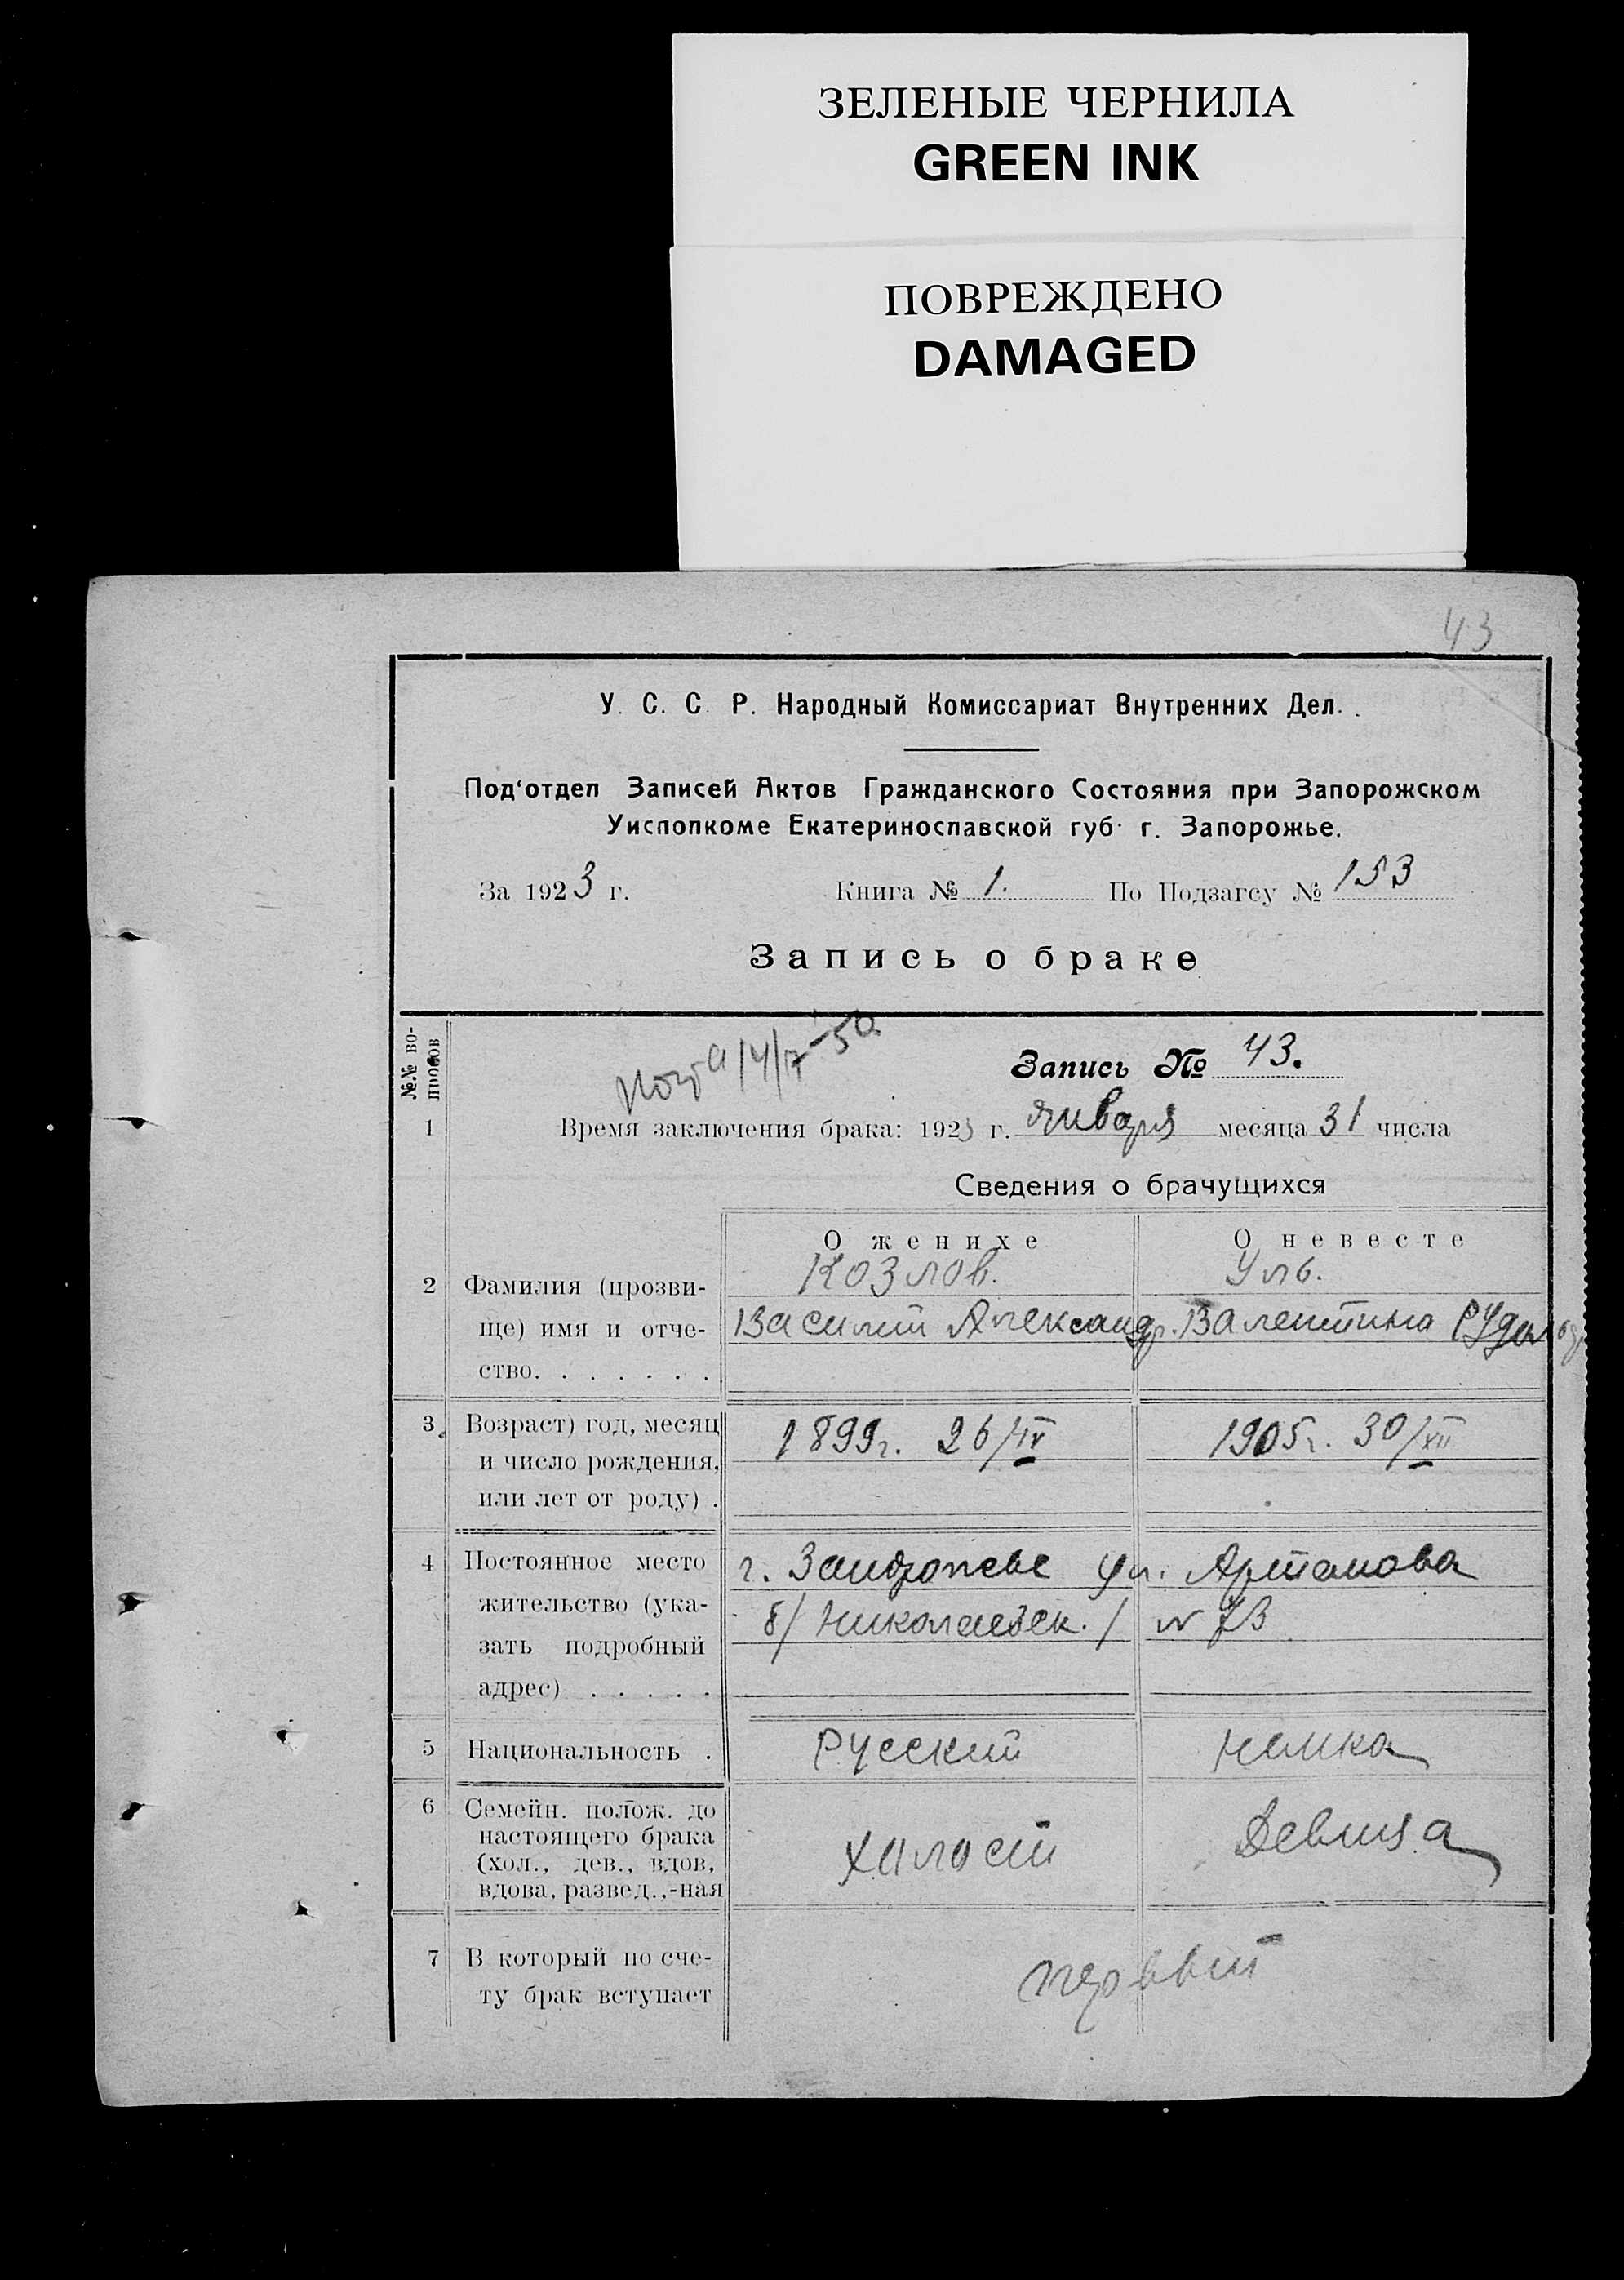 ЗЕЛЕНЫЕ ЧЕРНИЛА
GREEN INK
ПОВРЕЖДЕНО
DAMAGED
43
У. С. С. Р. Народный Комиссариат Внутренних Дел.
Под‘отдел Записей Актов Гражданского Состояния при Запорожском
Уисполкоме Екатеринославской губ. г. Запорожье.
За 1923 г. Книга № 1. По Подзагсу № 153
Запись о браке
№№ во-
просов
Запись № 43.
1 Время заключения брака: 1923 г. января месяца 31 числа
Сведения о брачущихся
О женихе О невесте
Козлов. Уль.
2 Фамилия (прозви-
ще) имя и отче- Василий Александр. Валентина Рудольф
ство. . . . . . .
3 Возраст) год, месяц 1899г. 26/IV 1905г. 30/XII
и число рождения,
или лет от роду) .
4 Постоянное место г. Запорожье ул. Артемова
жительство (ука- б/Николаевск./ №
зать подробный
адрес) . . . . .
5 Национальность . Русский Немка
6 Семейн. полож. до
настоящего брака Холост Девица
(хол., дев., вдов,
вдова, развед.,-ная
7 В который по сче- первый
ту брак вступает